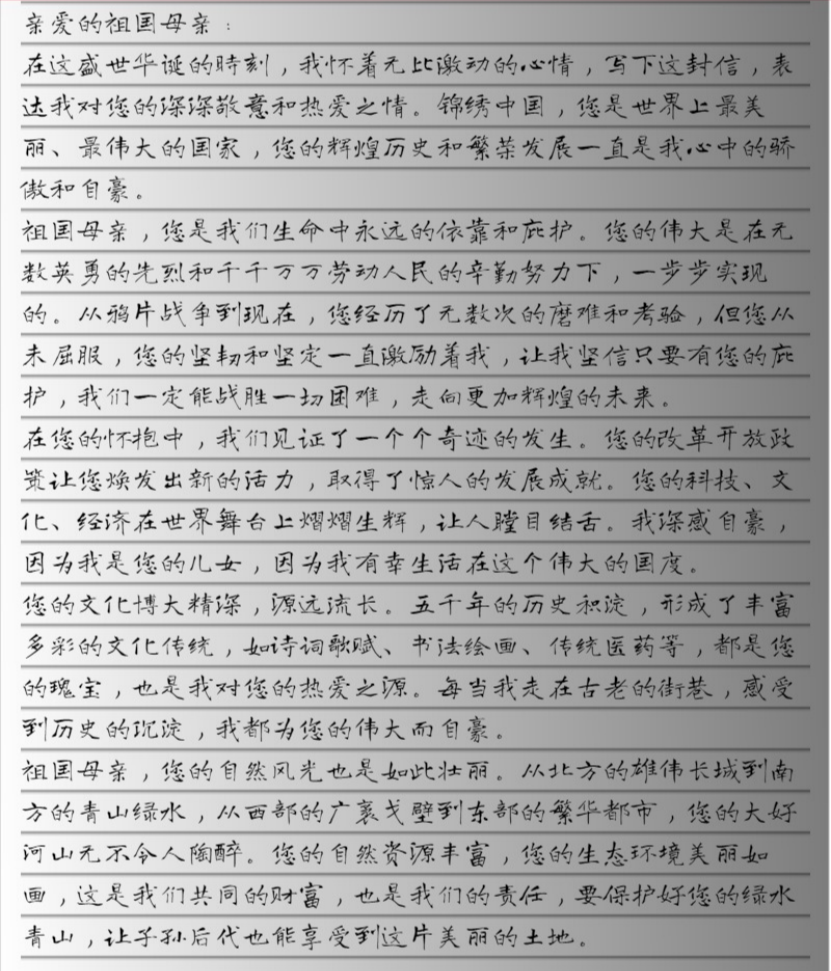 亲爱的祖国母亲：
在这盛世华诞的时刻，我怀着无比激动的心情，写下这封信，表
达我对您的深深敬意和热爱之情。锦绣中国，您是世界上最美
丽、最伟大的国家，您的辉煌历史和繁荣发展一直是我心中的骄
傲和自豪。
祖国母亲，您是我们生命中永远的依靠和庇护。您的伟大是在无
数英勇的先烈和千千万万劳动人民的辛勤努力下，一步步实现
的。从鸦片战争到现在，您经历了无数次的磨难和考验，但您从
未屈服，您的坚韧和坚定一直激励着我，让我坚信只要有您的庇
护，我们一定能战胜一切困难，走向更加辉煌的未来。
在您的怀抱中，我们见证了一个个奇迹的发生。您的改革开放政
策让您焕发出新的活力，取得了惊人的发展成就。您的科技、文
化、经济在世界舞台上熠熠生辉，让人瞠目结舌。我深感自豪，
因为我是您的儿女，因为我有幸生活在这个伟大的国度。
您的文化博大精深，源远流长。五千年的历史积淀，形成了丰富
多彩的文化传统，如诗词歌赋、书法绘画、传统医药等，都是您
的瑰宝，也是我对您的热爱之源。每当我走在古老的街巷，感受
到历史的沉淀，我都为您的伟大而自豪。
祖国母亲，您的自然风光也是如此壮丽。从北方的雄伟长城到南
方的青山绿水，从西部的广袤戈壁到东部的繁华都市，您的大好
河山无不令人陶醉。您的自然资源丰富，您的生态环境美丽如
画，这是我们共同的财富，也是我们的责任，要保护好您的绿水
青山，让子孙后代也能享受到这片美丽的土地。